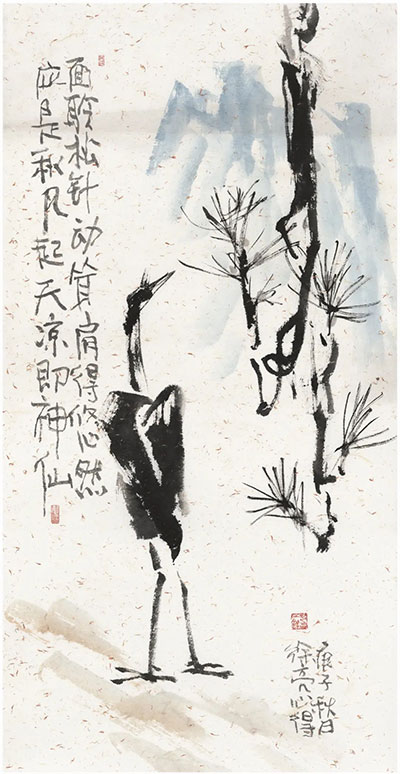 面聆松针动耸肩得悠然
应是秋风起天凉即神仙
庚子秋日
徐亮心得